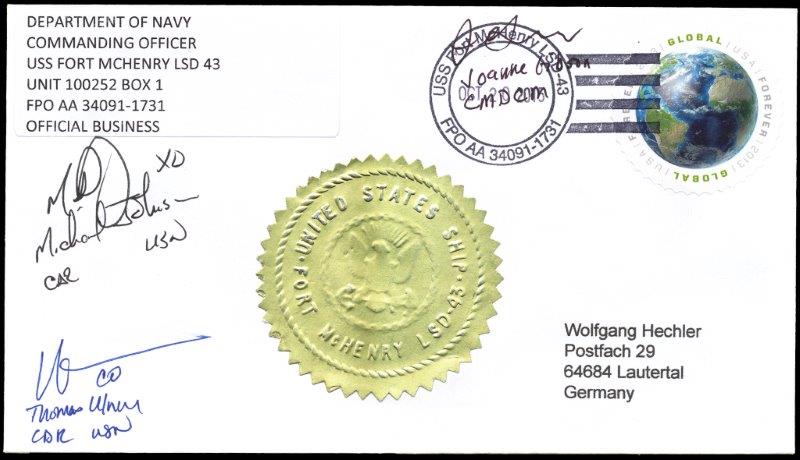 DEPARTMENT OF NAVY
COMMANDING OFFICER
USS FORT MCHENRY LSD 43
UNIT 100252 BOX 1
FPO AA 34091-1731
OFFICIAL BUSINESS
USS Fort McHenry LSD-43
OCT
FPO AA 34091-1731
Joanne
CMDCM
GLOBAL
USA FOREVER 2013
GLOBAL
USA FOREVER
XO
Michael Johnson
CDR USN
UNITED STATES SHIP
FORT McHENRY LSD-43
CO
Thomas
CDR USN
Wolfgang Hechler
Postfach 29
64684 Lautertal
Germany